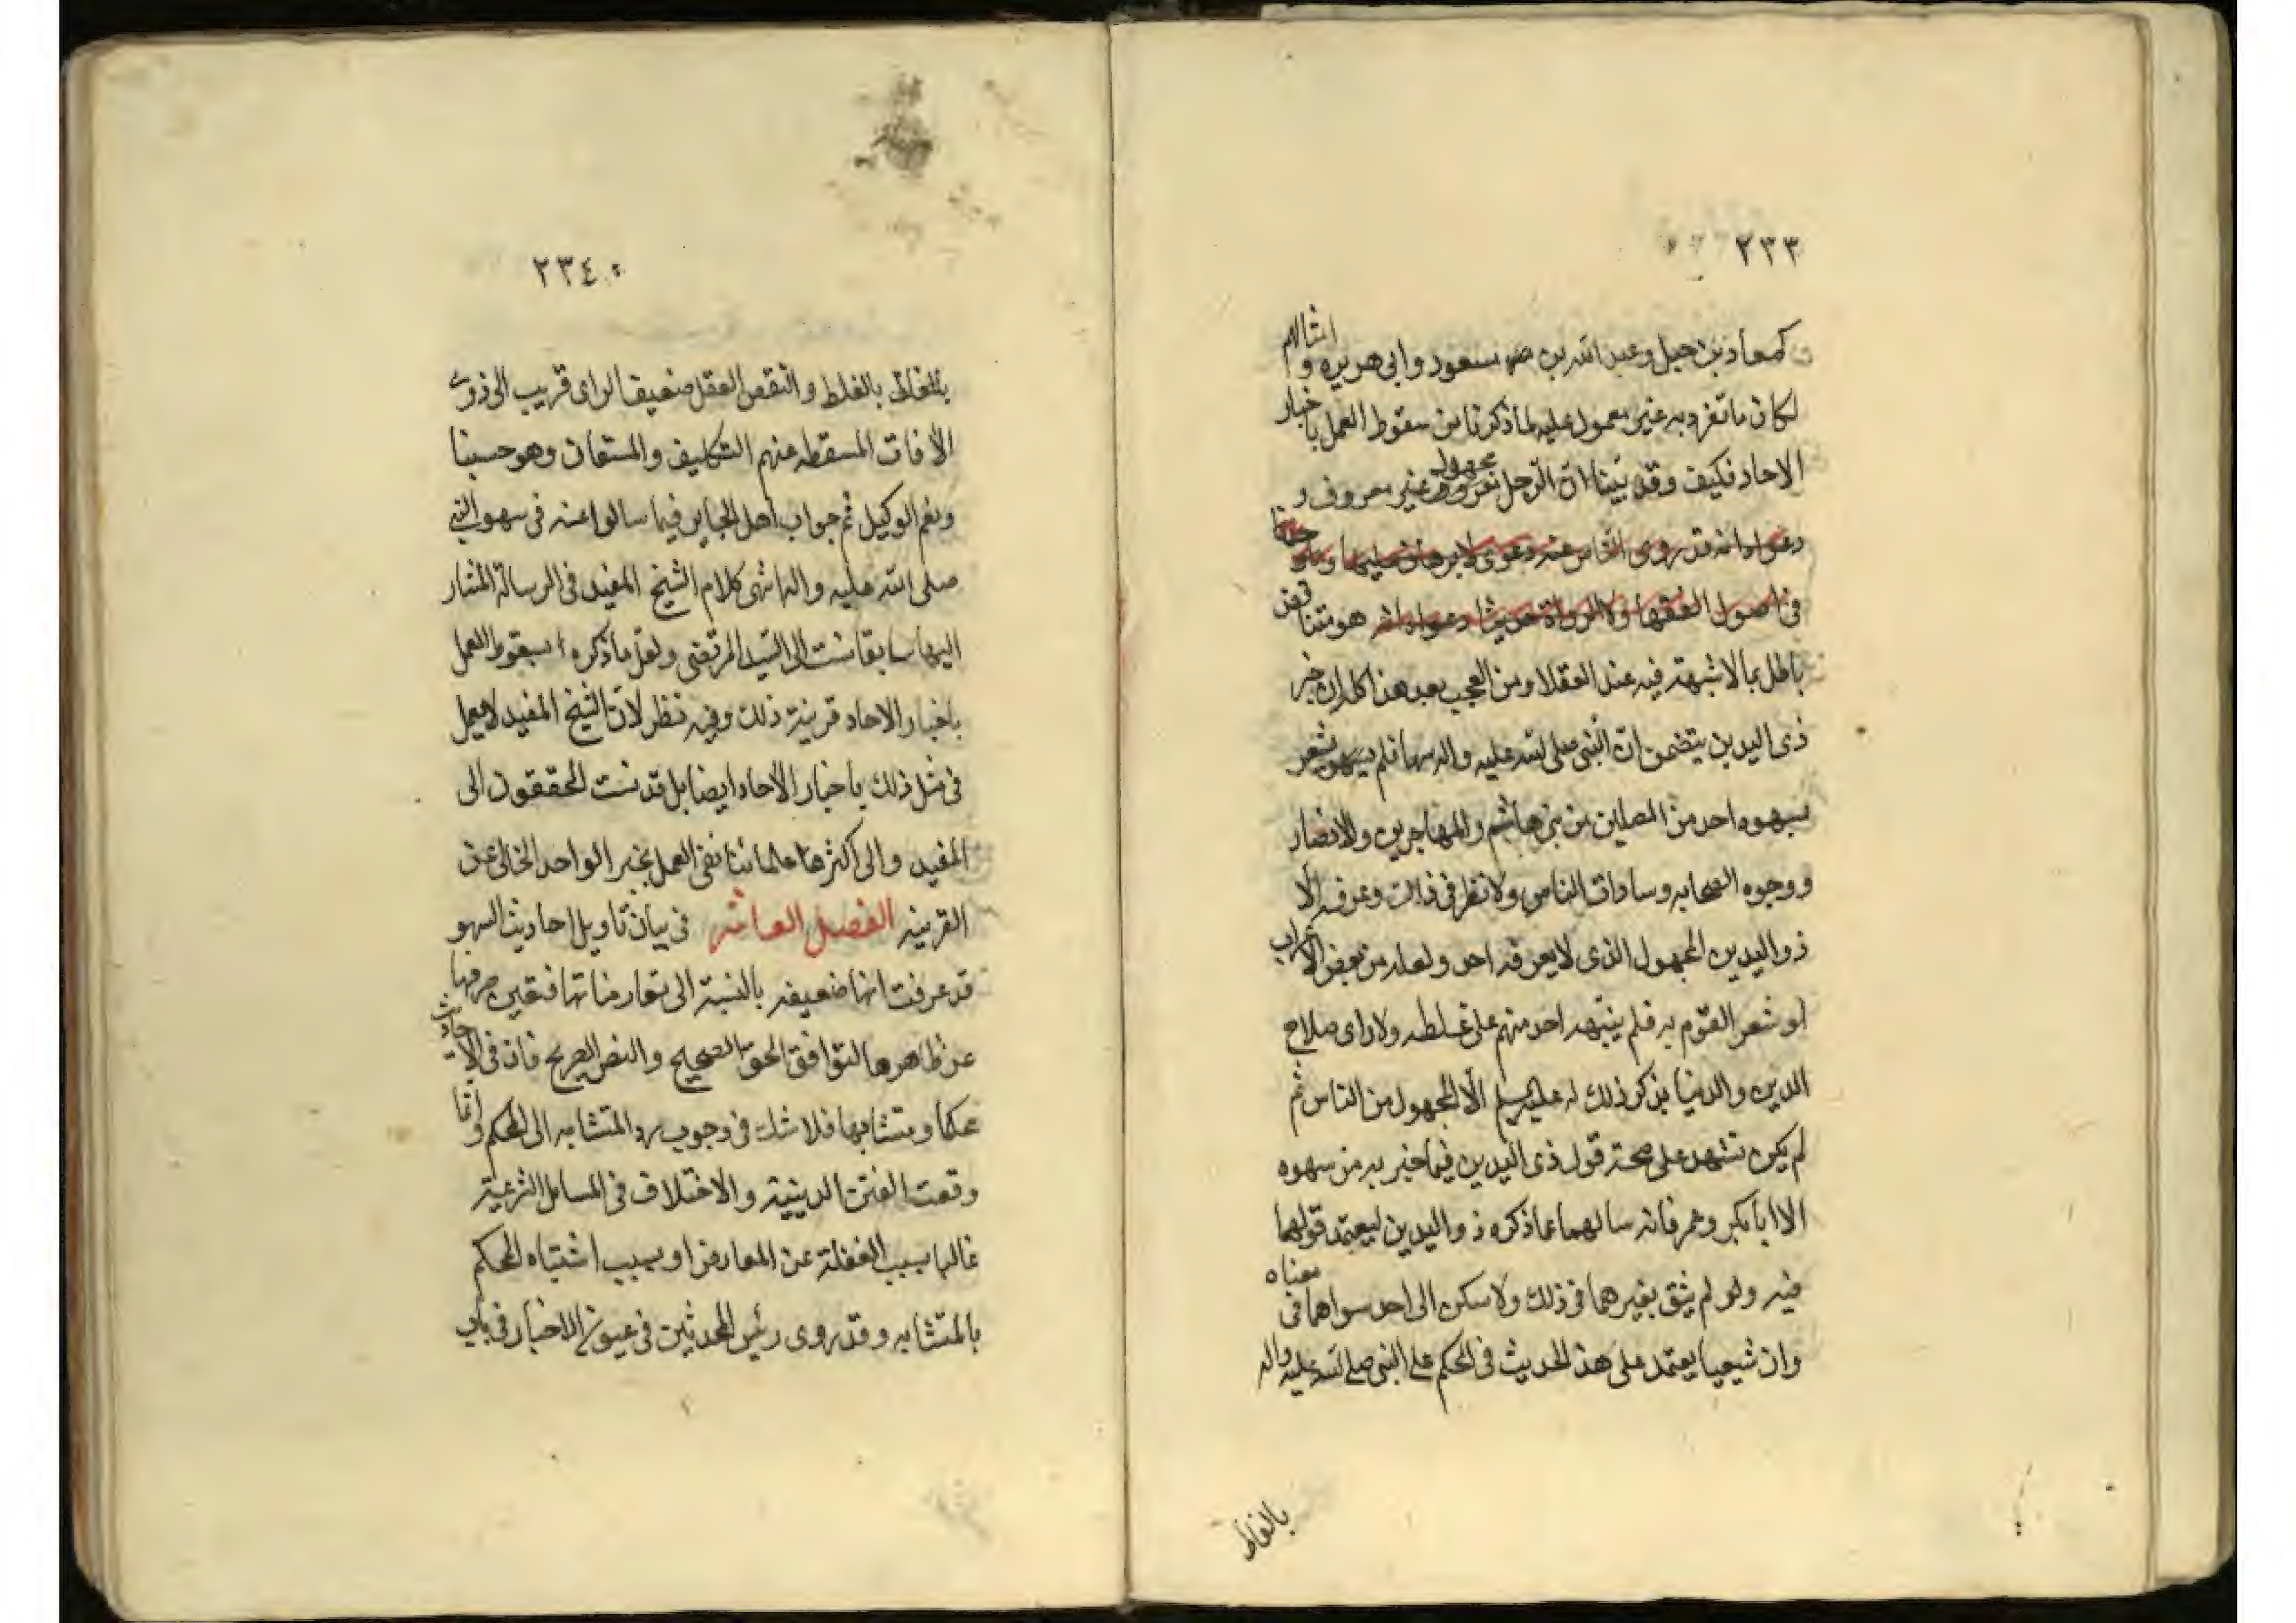 ٢٣٣
كمعاذ بن جبل وعبد الله بن مسعود وابى هريره و امثالهم
لكان ما تفرد به غير معمول عليه لما ذكرنا من سقوط العمل باخبار
الاحاد فكيف وقد بينا ان الرجل مجهول غير معروف و
دعواه انه قد روى الناس عنه دعوى لا برهان عليها و
فى اصول الفقها ولا الرواة حديثا دعواه هو متناقض
باطل بما لا شبهة فيه عند العقلا ومن العجب بعد هذا كله ان خبر
ذى اليدين يتضمن ان النبى صلى الله عليه واله سها فلم يشعر
بسهوه احد من المصلين من بنى هاشم والمهاجرين والانصار
ووجوه الصحابه وسادات الناس ولا نظر فى ذلك وعرفه الا
ذو اليدين المجهول الذى لا يعرفه احد ولعله من بعض الاعراب
او شعر القوم به فلم ينبهه احد منهم على غلطه ولا راى صلاح
الدين والدنيا بذكر ذلك له عليه السلم الا المجهول من الناس ثم
لم يكن تشهد على صحة قول ذى اليدين فيما خبر به من سهوه
الا ابا بكر وعمر فانه سالهما عما ذكره ذو اليدين ليعتمد قولهما
فيه ولو لم يثق بغيرهما فى ذلك ولا سكن الى احد سواهما فى معناه
وان شيعيا يعتمد على هذ الحديث فى الحكم على النبى صلى الله عليه واله
بالغلط
٢٣٤
بالغلط بالغلط والنقص العقل ضعيف الراى قريب الى ذوى
الافات المسقطه عنهم التكليف والمستعان وهو حسبنا
ونعم الوكيل ثم جواب اهل الحاير فيما سالوا عنه فى سهو النبى
صلى الله عليه واله انتهى كلام الشيخ المفيد فى الرسالة المشار
اليها سابقا نسبت الى السيد المرتضى ولعل ما ذكره سقوط العمل
باخبار الاحاد قرينة ذلك وفيه نظر لان الشيخ المفيد لا يعمل
فى مثل ذلك باخبار الاحاد ايضا بل قد نسب المحققون الى
المفيد والى اكثرها علمائنا نفى العمل بخبر الواحد الخالى عن
القرينه الفصل العاشر فى بيان تاويل احاديث السهو
قد عرفت انها ضعيفه بالنسبة الى معارضاتها فتعين صرفها
عن ظاهرها لتوافق الحق الصحيح والنص الصريح فان فى الاحاديث
محكما ومتشابها فلا شك فى وجوب رد المتشابه الى المحكم وانما
وقعت الفتن الدينية والاختلاف فى المسايل الشرعية
غالبا بسبب الغفلة عن المعارض او بسبب اشتباه المحكم
بالمتشابه وقد روى رئيس المحدثين فى عيون الاخبار فى باب